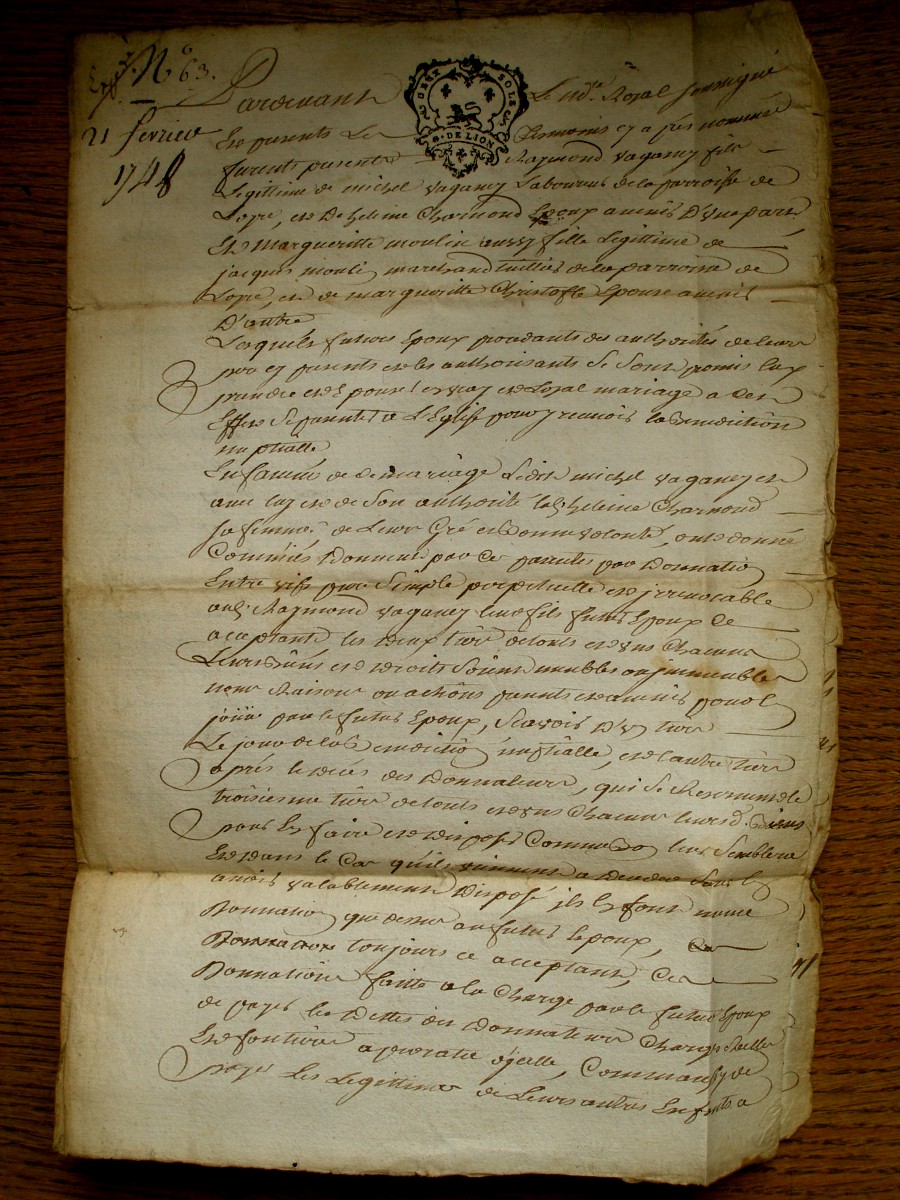 Expé. N° 63.
21 fevrier
1748
DEUX SOLS
G. DE LION
Pardevant Le no.re Royal soussigné
Et presents Les temoins cy apres nommés
furent presents Raymond vaganey fils
Legittime de michel vaganey Laboureur de la parroisse de
Loyre, et d'heleine Charmond Epoux avenir D'une part,
Et Margueritte moulin aussy fille Legittime de
jacques moulin marchand de la parroisse de
Loyre, et de margueritte Christofle Epouse avenir
D'autre
Lesquels futurs Epoux procedants des authorités de leurs
per et presents et les authorisants se sont promis
prendre et Epouser en vray et Loyal mariage a cet
Effet se presenter a L'Eglise pour y recevoir la Benediction
nuptialle
En faveur de ce mariage Ledit michel vaganey et
avec luy et de son authorité lad. heleine Charmond
sa femme de Leur Gré et Bonne volonté, ont donné
Comme ils Donnent par Ces presentes par Donnation
Entre vifs pure simple perpetuelle et jrrevocable
aud. Raymond vaganey leur fils futur Epoux Ce
acceptant les deux tiers de touts et uns Chacuns
Leurs Biens et droits soient meubles ou jmmeubles
noms Raisons ou actions presents et avenir pour
jouir par le futur Epoux, scavoir D'un tiers
Le jour de la Benediction nuptialle, et L'autre tiers
apres le deces des Donnateurs, qui se Reservent le
troisieme tiers de touts et uns Chacuns leursd. Biens
pour En faire et disposer Comme Bon leur semblera
Et dans le Cas qu'ils vinssent a deceder sans En
avoir valablement Disposé jls En font meme
Donnation que dessus au futur Epoux,
Donnation toujours ce acceptant, Cette
Donnation faitte a la Charge par le futur Epoux
de payer les Dettes des Donnateurs Charges Reelles
Et foncieres a prorata d'jcelle, Comme aussy de
payer Les Legittimes de Leurs autres Enfants a